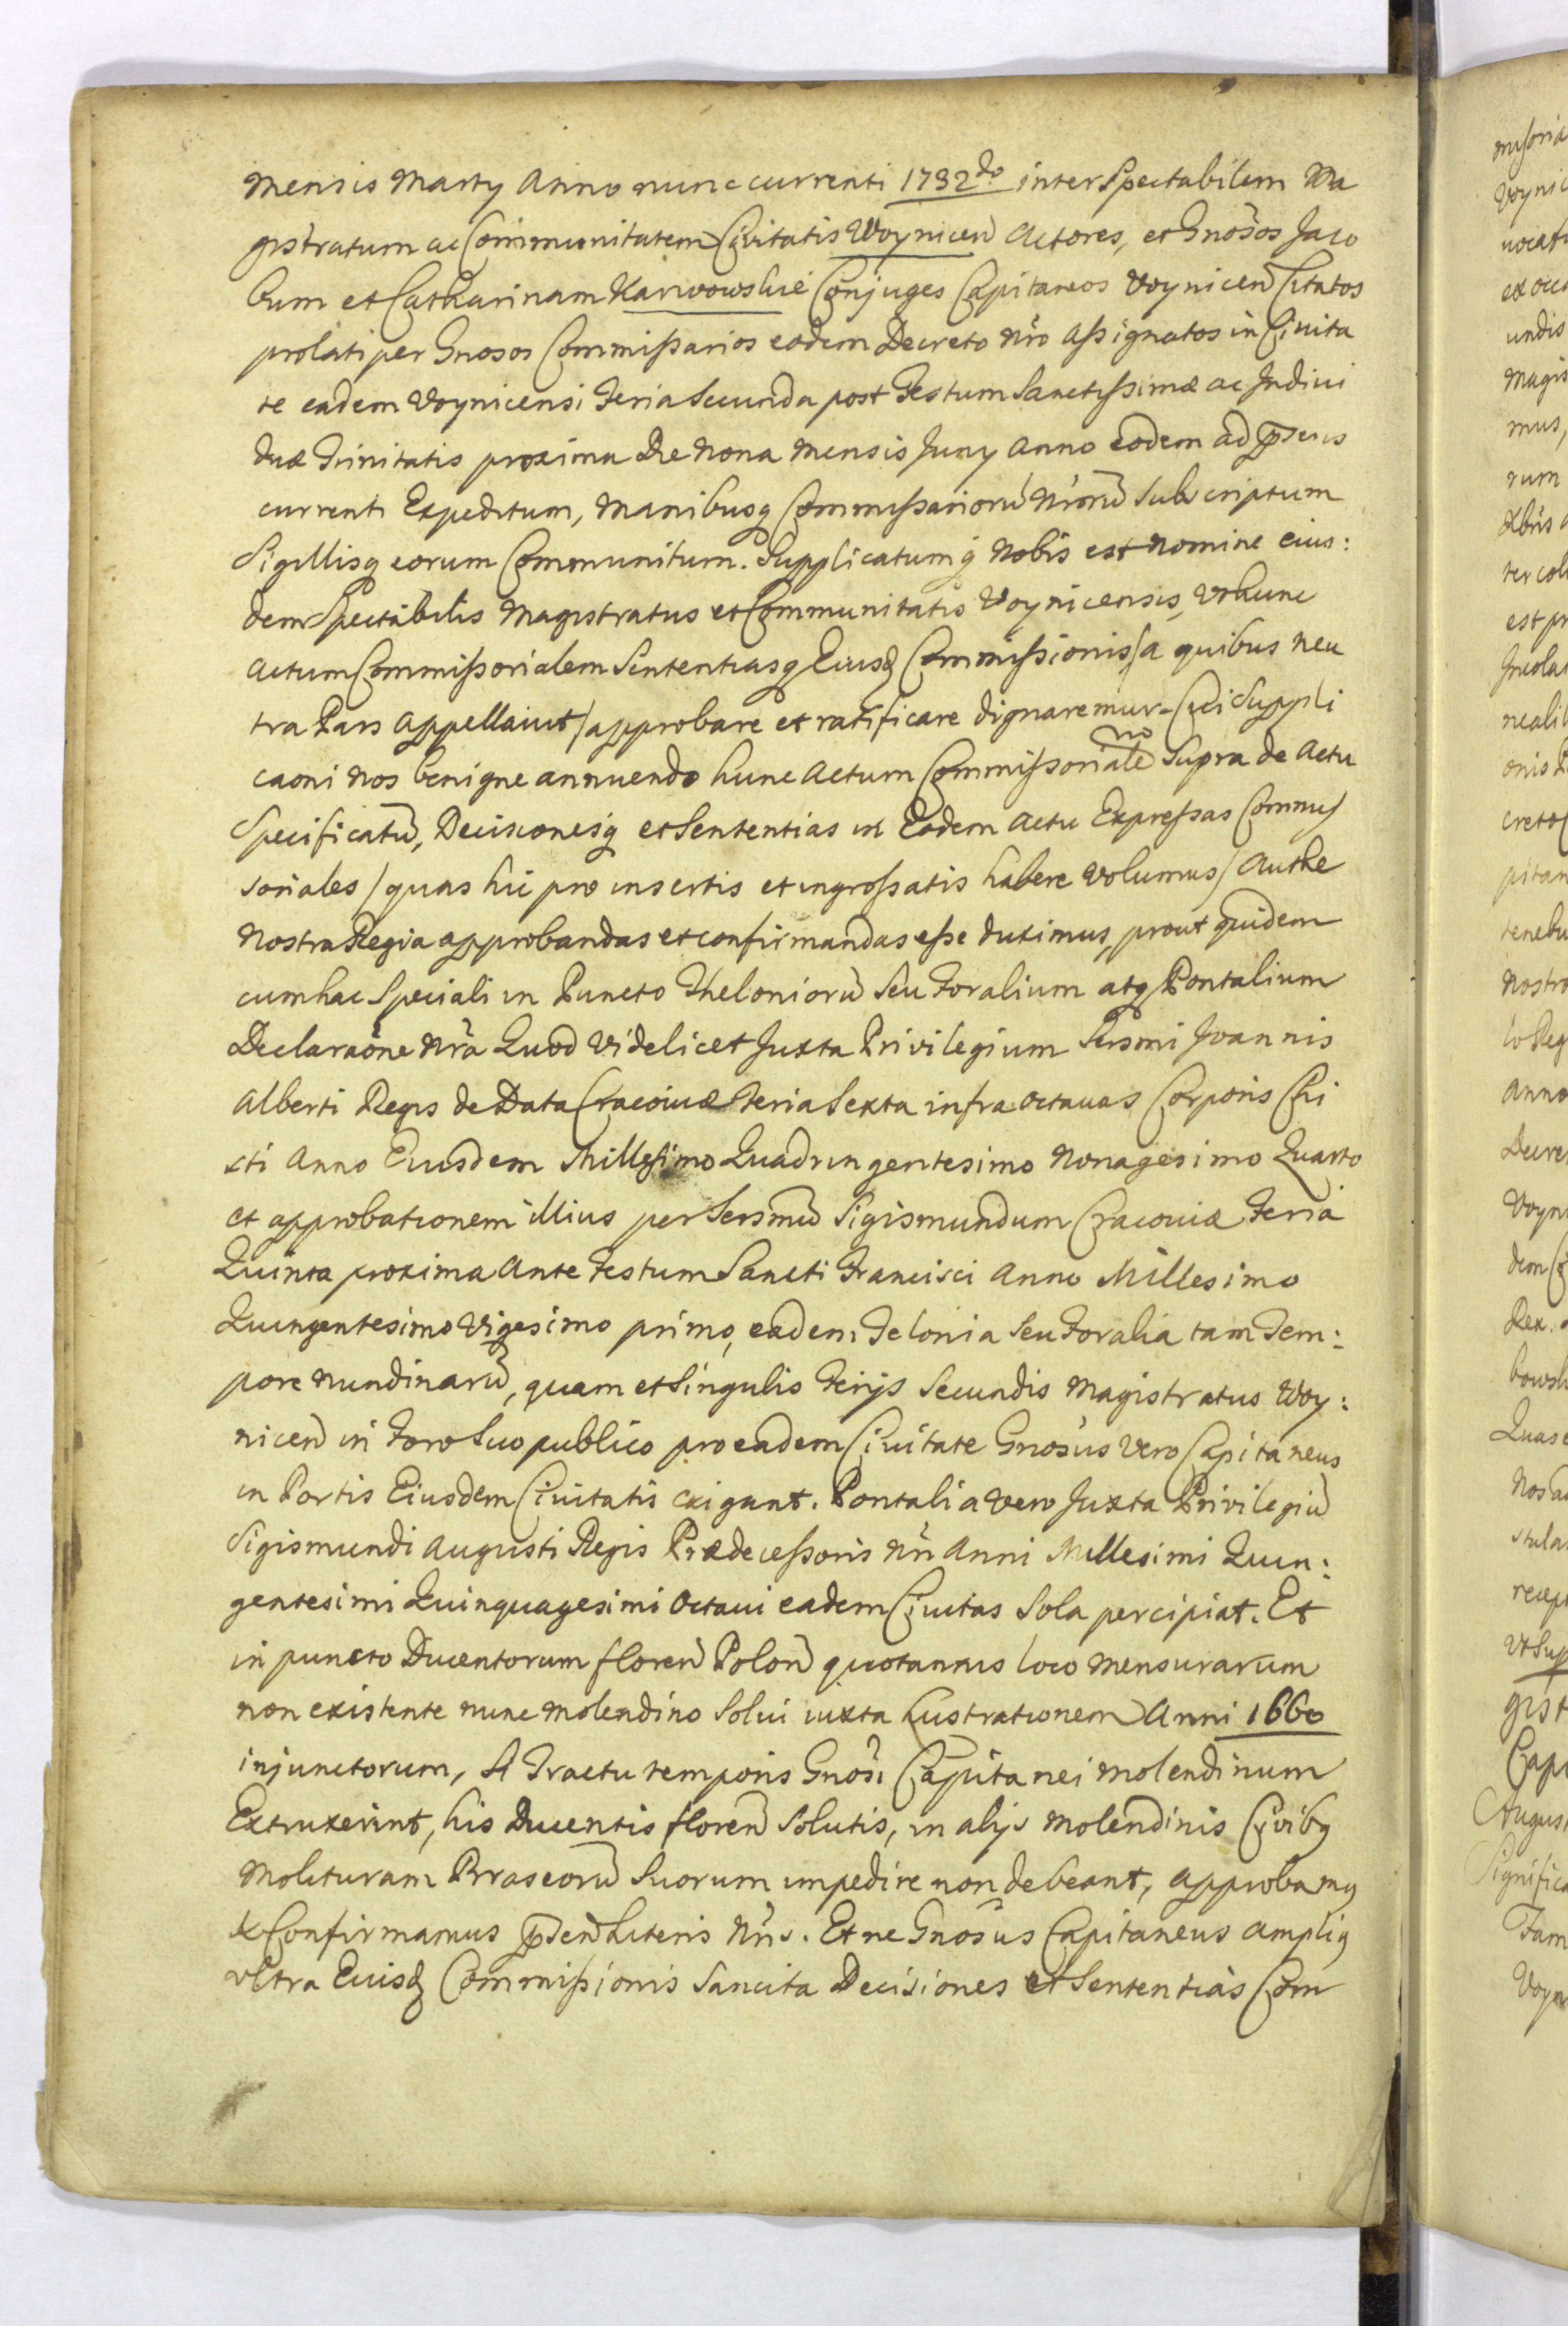 Mensis Marty Anno nunc currenti 1732do inter Spectabilem Ma
gistratum ac Communitatem Civitatis Woynicen̄ Actores, et Gnosos Jaco
bum et Catharinam Karwowskie Conjuges Capitaneos Voynicen̄ Citatos
prolati per Gnosos Commissarios eodem Decreto Nro Assignatos in Civita
te eadem Voynicensi Feria Secunda post Festum Sanctissimæ ac Indivi
duæ Trinitatis proxima Die Nona Mensis Juny Anno eodem ad p̄sens
currenti Expeditum, Manibusq Commissariorū Nrorū Subscriptum
Sigillisq eorum Communitum. Supplicatumq Nobis est Nomine eius:
dem Spectabilis Magistratus et Communitatis Voynicensis, Vt hunc
Actum Commissorialem Sententiasq Eiusd Commissionis /a quibus neu
tra Pars Appellavit/ approbare et ratificare dignaremur. Cui Suppli
caoni Nos benigne annuendo hunc Actum Commissoriale no Supra de Actu
Specificatū, Decisionesq et Sententias in Eodem Actu Expressas Commis
soriales /quas hic pro insertis et ingrossatis habere Volumus/ Authe
Nostra Regia approbandas et confirmandas esse duximus, prout quidem
cum hac Speciali in Puncto Theloniorū Seu Foralium atq Pontalium
Declaraōne Nra Quod Videlicet Juxta Privilegium Sersmi Joannis
Alberti Regis de Data Cracoviæ Feria Sexta infra Octavas Corporis Chri
sti Anno Eiusdem Millesimo Quadringentesimo Nonagesimo Quarto
et approbationem illius per Sersmū Sigismundum Cracoviæ Feria
Quinta proxima Ante Festum Sancti Francisci Anno Millesimo
Quingentesimo Vigesimo primo, eadem Telonia Seu Foralia tam Tem:
pore Nundinarū, quam et Singulis Ferijs Secundis Magistratus Woy:
nicen̄ in Foro Suo publico pro eadem Civitate Gnosus Vero Capitaneus
in Portis Eiusdem Civitatis exigant. Pontalia Vero Juxta Privilegiū
Sigismundi Augusti Regis Prædecessoris Nri Anni Millesimi Quin:
gentesimi Quinquagesimi Octavi eadem Civitas Sola percipiat. Et
in puncto Ducentorum floren̄ Polon̄ quotannis loco Mensurarum
non existente nunc Molendino Solvi iuxta Lustrationem Anni 1660
injunctorum, Si Tractu temporis Gnosi Capitanei Molendinum
Extruxerint, his Ducentis floren̄ Solutis, in alijs Molendinis Civibq
Molituram Braseorū Suorum impedire non debeant, approbamq
& Confirmamus p̄sen̄ Literis Nris. Et ne Gnosus Capitaneus Ampliq
vltra Euisd Commissionis Sancita Decisiones et Sententias Com